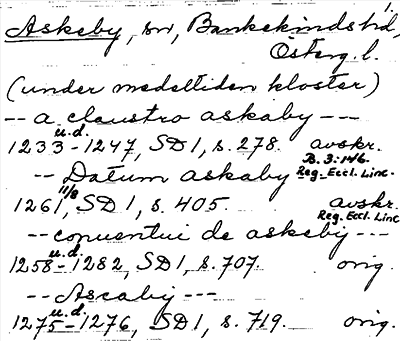 1.
Askeby, sn, Bankekinds hd,
Österg. l.
(under medeltiden kloster)
-- a claustro askaby ---
u.d.
1233 - 1247, SD 1, s. 278. avskr.
B. 3: 146.
-- Datum askaby Reg. Eccl. Linc.
1261 11/8, SD 1, s. 405. avskr.
Reg. Eccl. Linc
-- conuentui de askeby ---
u.d.
1258 - 1282, SD 1, s. 707. orig.
-- Ascaby ---
u.d.
1275 - 1276, SD 1, s. 719. orig.